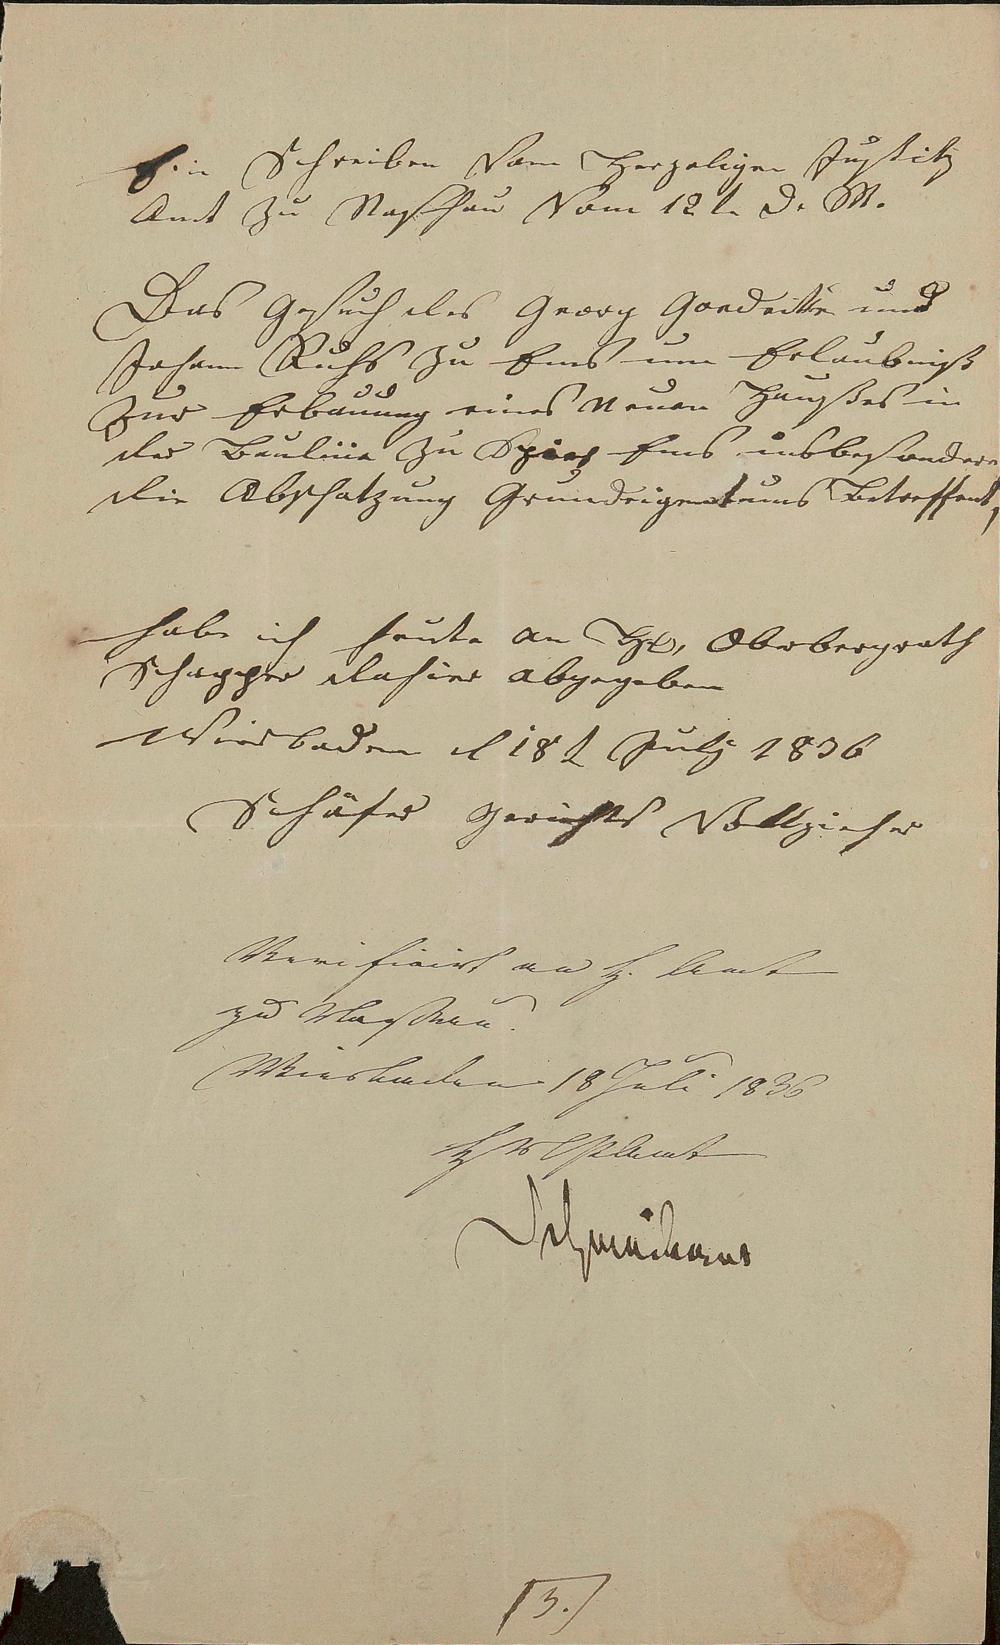 Ein Schreiben vom Herzoligen Justitz
Amt zu Nassau vom 12t. d. M.
Das Gesuch des Georg und
Johann zu Ems um Erlaubniß
zur Erbauung eines neuen Haußes in
der Baulinie zu Ems insbesondere
die Abschatzung Grundeigentums Betreffent,
habe ich heute an H. Oberbergrath
Schapper dahier abgegeben
Wiesbaden d 18t July 1836
Schäfer Gerichts Vollzieher
Verifizirt an H. Amt
zu Nassau.
Wiesbaden 18 Juli 1836
3.